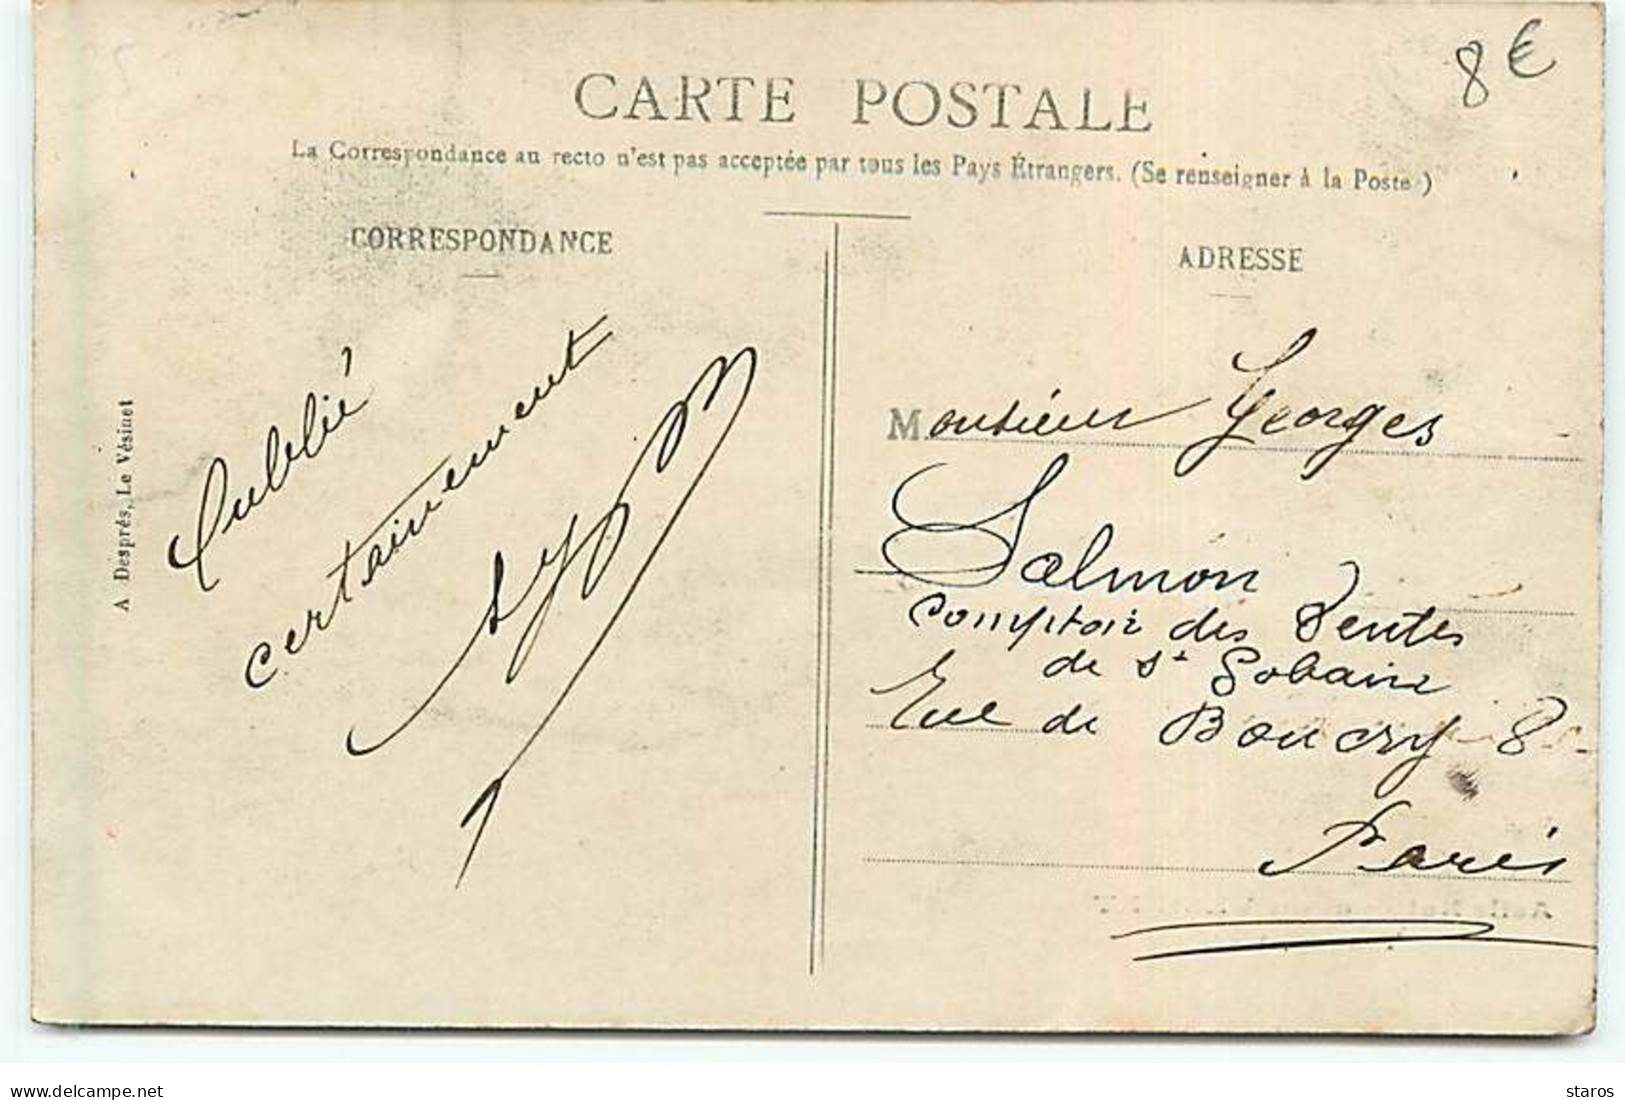 8 €
CARTE POSTALE
La Correspondance au recto n'est pas acceptée par tous les Pays Étrangers. (Se renseigner à la Poste.)
CORRESPONDANCE
A Després, Le Vésinet
Oublié
certainement
ADRESSE
Monsieur Georges
Salmon
Comptoir des Ventes
de St Gobain
Rue de Boucry 8
Paris
Delcampe.net
staros